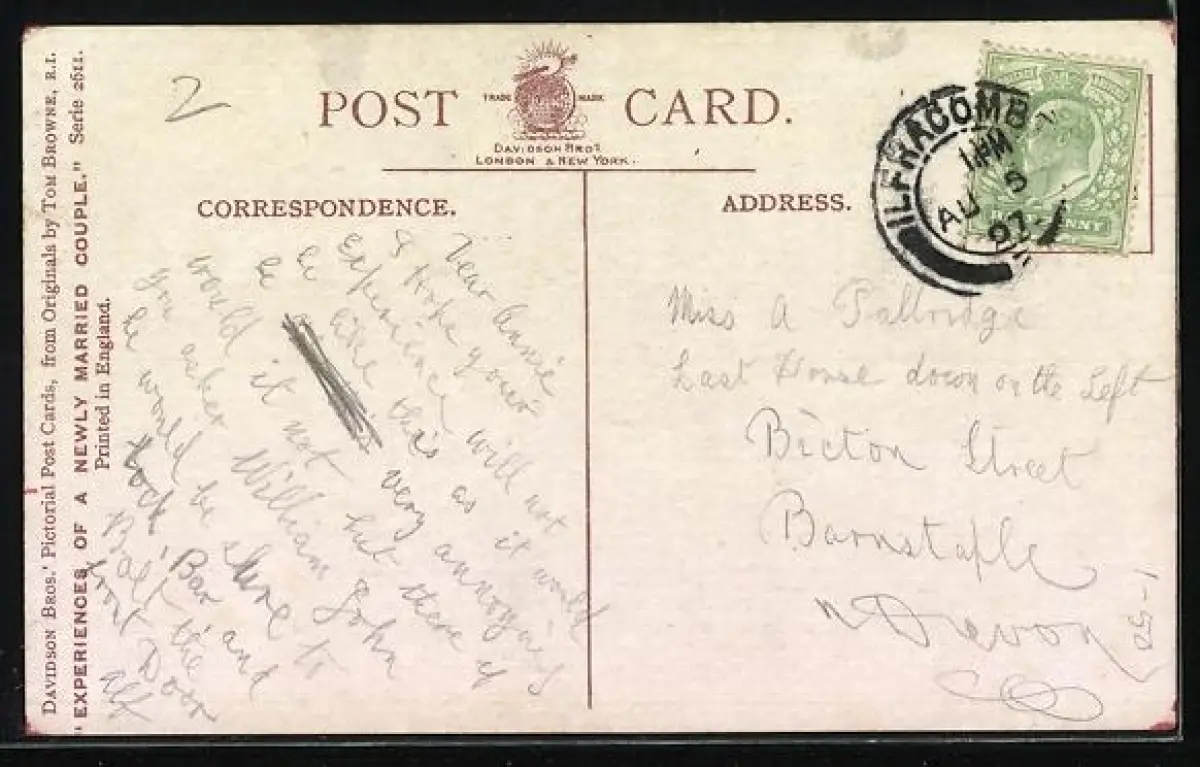 DAVIDSON BROS.' Pictorial Post Cards, from Originals by TOM BROWNE, R.I.
"EXPERIENCES OF A NEWLY MARRIED COUPLE." Serie 2611.
Printed in England.
2
POST CARD.
TRADE MARK
DAVIDSON BROS
LONDON & NEW YORK.
CORRESPONDENCE.
Dear Annie
I hope your
Experience will not
be like this as it would
be very annoying
would it not but there if
you asker William John
he would be shure to
Lock, Bar and
Bolt the
front Door
alf
ADDRESS.
ILFRACOMB
1 PM
AU 5
07
HALFPENNY
Miss A
Last House down on the Left
Bicton Street
Barnstaple
N Devon